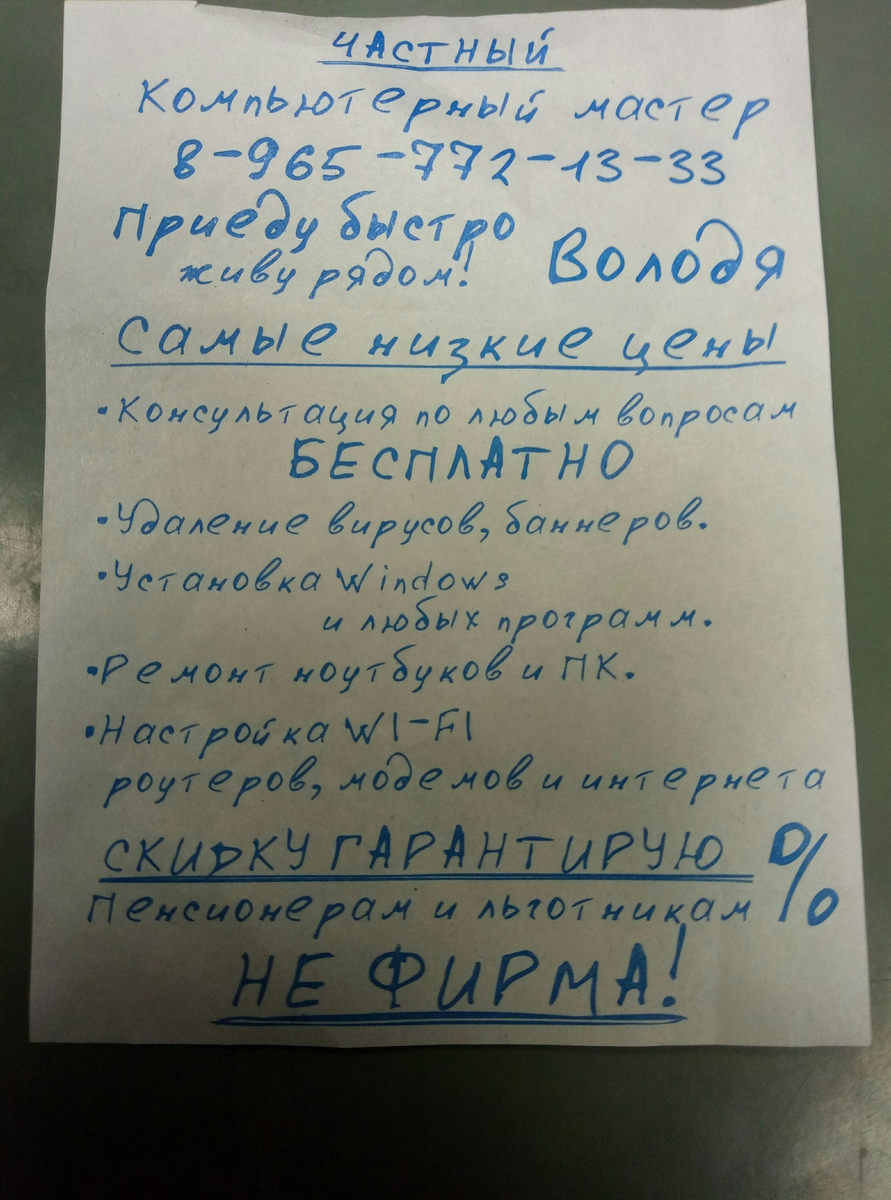 ЧАСТНЫЙ
Компьютерный мастер
8-965-772-13-33
Приеду быстро
живу рядом!
Володя
Самые низкие цены
• Консультация по любым вопросам
БЕСПЛАТНО
• Удаление вирусов, баннеров.
• Установка Windows
и любых программ.
• Ремонт ноутбуков и ПК.
• Настройка WI-FI
роутеров, модемов и интернета
СКИДКУ ГАРАНТИРУЮ %
Пенсионерам и льготникам
НЕ ФИРМА!